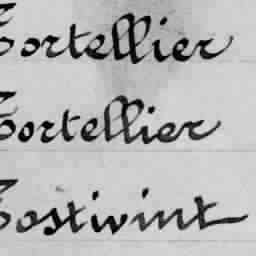 Tortellier
Tortellier
Tostivint